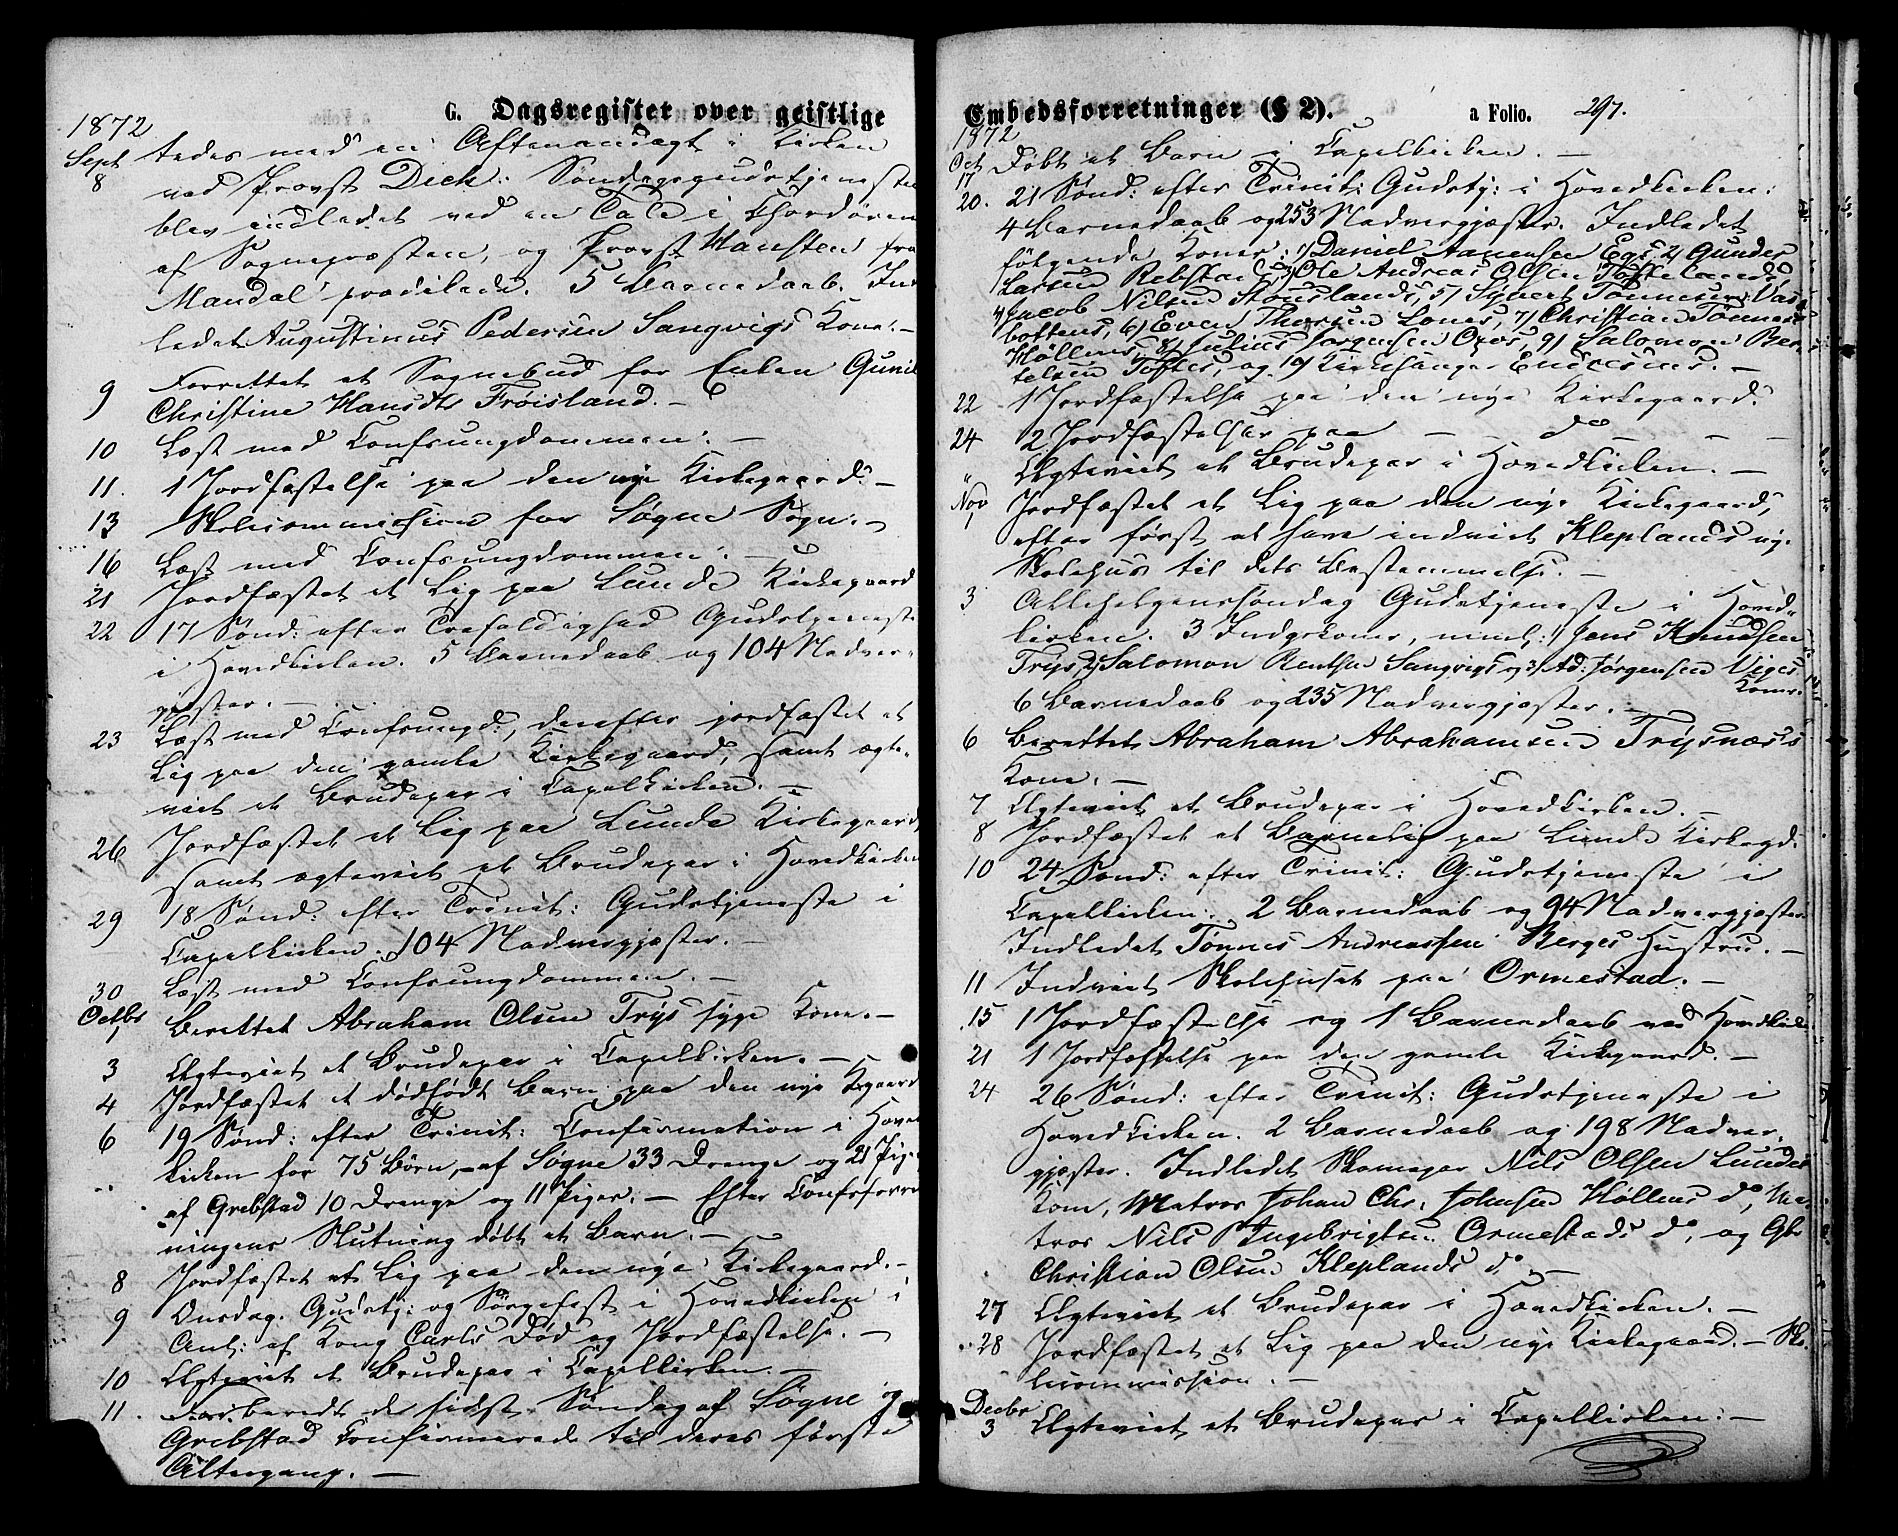 G. Dagsregister over geistlige
1872
Sept tedes med en Aftenandagt i Kirken
8 ved Provst Dick. Søndagsgudstjenesten
blev indledet ved en Tale i Chordøren
af Sognepræsten, og Provst Hansteen fra
Mandal prædikede. 5 Barnedaab. Ind-
ledet Augustinus Pedersen Sangvigs Kone. –
9 Forrettet et Sognebud for Enken Gunil
Christine Hansdtr Frøisland. –
10 Læst med Confirm.ungdommen. –
11. 1 Jordfæstelse paa den nye Kirkegaard. –
13 Skolecommission for Søgne Sogn. –
16 Læst med Confsungdommen. –
21 Jordfæstet et Lig paa Lunde Kirkegaard
22 17 Sønd: efter Trefoldighed Gudstjeneste
i Hovedkirken. 5 Barnedaab og 104 Nadver-
gjæster. –
23 Læst med Confsungd:, derefter jordfæstet et
Lig paa den gamle Kirkegaard, samt ægte-
viet et Brudepar i Capelkirken. –
26 Jordfæstet et Lig paa Lunde Kirkegaard,
samt ægteviet et Brudepar i Hovedkirken
29 18 Sønd: efter Trinit: Gudstjeneste i
Capelkirken. 104 Nadvergjæster. –
30 Læst med Confsungdommen. –
Octbr
1 Berettet Abraham Olsen Trys syge Kone. –
3 Ægteviet et Brudepar i Capelkirken. –
4 Jordfæstet et dødfødt Barn paa den nye Kgaard
6 19 Sønd: efter Trinit: Confirmation i Hoved
kirken for 75 Børn, – af Søgne 33 Drenge og 21 Pig
af Grebstad 10 Drenge og 11 Piger. – Efter Confsforret
ningens Slutning døbt et Barn. –
8 Jordfæstet et Lig paa den nye Kirkegaard. –
9 Onsdag. Gudstj: og Sørgefest i Hovedkirken i
Anl: af Kong Carls Død og Jordfæstelse. –
10 Ægteviet et Brudepar i Capelkirken. –
11. Forberedt de sidst Søndag af Søgne og
Grebstad Confirmerede til deres første
Altergang. –
Embedsforretninger (§ 2). a Folio. 297.
1872
Oct
17 Døbt et Barn i Capelkirken. –
20. 21 Sønd: efter Trinit: Gudstj: i Hovedkirken:
4 Barnedaab og 253 Nadvergjæster. Indledet
følgende Koner: 1) Daniel Aanensen Egs, 2) Gunder
Larsen Rebstads, 3) Ole Andreas Olsen Toftelands,
4) Jacob Nilsen Stouslands, 5) Sivert Tønnesen Vas
bottens, 6) Even Thorsen Lones, 7) Christian Tønnes
Høllens, 8) Julius Jørgensen Oxøs, 9) Salomon Ber-
telsen Toftes, og 10) Kirkesanger Endresens. –
22 1 Jordfæstelse paa den nye Kirkegaard.
24 2 Jordfæstelser paa – do – – –
" Ægteviet et Brudepar i Hovedkirken. –
Nov
1 Jordfæstet et Lig paa den nye Kirkegaard,
efter først at have indviet Kleplands ny.
Skolehus til dets Bestemmelse. –
3 Allehelgenssøndag Gudstjeneste i Hoved-
kirken. 3 Indgskoner, neml: 1) Jens Knudsen
Trys, 2) Salomon Rentsen Sangvigs og 3) Ad: Jørgensen Viges
Koner.
6 Barnedaab og 235 Nadvergjæster. –
6 Berettet Abraham Abrahamsen Trysnæss
Kone. –
7 Ægteviet et Brudepar i Hovedkirken. –
8 Jordfæstet et Barnelig paa Lunde Kirkegd.
10 24 Sønd: efter Trinit: Gudstjeneste i
Capelkirken. 2 Barnedaab og 94 Nadvergjæster.
Indledet Tønnes Andreassen Berges Hustru. –
11 Indviet Skolehuset paa Ormestad. –
15 1 Jordfæstelse og 1 Barnedaab ved Hovedkirken
21 1 Jordfæstelse paa den gamle Kirkegaard. –
24 26 Sønd: efter Trinit: Gudstjeneste i
Hovedkirken. 2 Barnedaab og 198 Nadver-
gjæster. Indledet Skomager Nils Olsen Lundes
Kone, Matros Johan Chr. Johnsen Høllens do, Ma-
tros Nils Ingebrigtsen Ormestads do, og Gbr
Christian Olsen Kleplands do –
27 Ægteviet et Brudepar i Hovedkirken. –
28 Jordfæstet et Lig paa den nye Kirkegaard. – Sko-
lecommission. –
Decbr
3 Ægteviet et Brudepar i Capelkirken. –